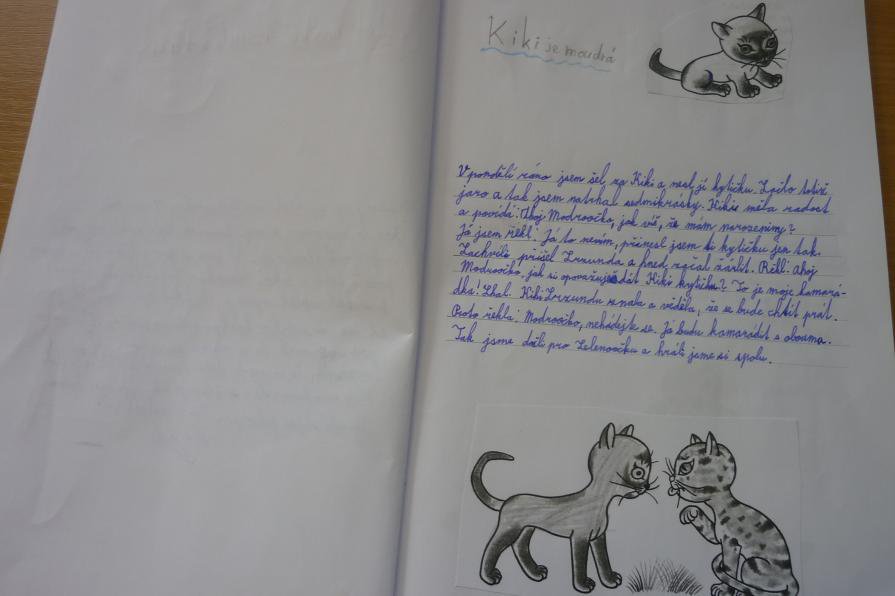 Kiki je moudrá
V pondělí ráno jsem šel za Kiki a nesl jí kytičku. Začlo totiž
jaro a tak jsem natrhal sedmikrásky. Kikie měla radost
a povídá: Ahoj Modroočko, jak víš, že mám narozeniny?
Já jsem řekl: Já to nevím, přinesl jsem ti kytičku jen tak.
Zachvíli přišel Lrzunda a hned začal žárlit. Řekl: Ahoj
Modroočko, jak si opovažuješ dát Kiki kytičku? To je moje kamará-
dka! Lhal. Kiki Lrzundu znala a věděla, že se bude chtít prát.
Proto řekla: Modroočko, nehádejte se. Já budu kamarádit s obouma.
Tak jsme došli pro Zelenoočku a hráli jsme si spolu.